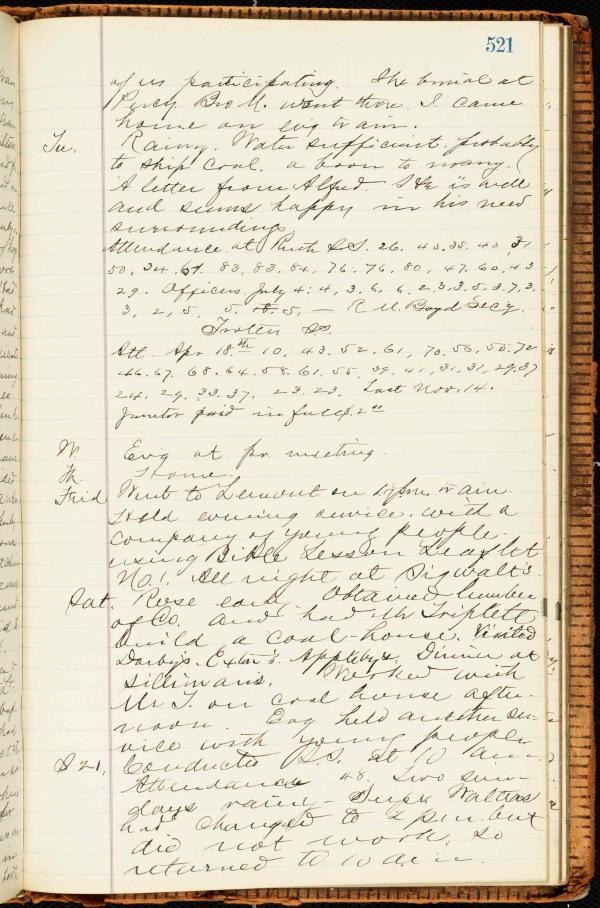 521
of us participating. The burial at
Percy. Bro M. went there. I came
home on evg train.
Tu. Rainy. Water sufficient probably
to ship coal. a boon to many.
A letter from Alfred. He is well
and seems happy in his new
surroundings.
Attendance at S.S. 26. 40. 35. 40. 31
50, 34. 61. 83, 83, 84, 76. 76. 80, 47. 60. 43
29. Officers July 4: 4, 3, 6, 6, 2. 3. 3. 5. 3. 7, 3,
3, 2, 5, 5. 8. 5, — R. M. Boyd Secy.
Trotter S.S.
Att. Apr 18th 10, 43. 52. 61, 70. 56, 50. 72
46. 67. 68. 64. 58. 61. 55, 39, 41, 31, 31, 29. 37
24. 29, 33. 37, 23. 23, Last Nov. 14.
Janitor paid in full $2.00
W. Evg at pr. meeting.
Th Home.
Frid Went to Lemont on train.
Held evening service with a
company of young people
using Bible Lesson Leaflet
No. 1. All night at Sigwalt's.
Sat. Rose early. Obtained lumber
of Co. and had Mr Triplett
build a coal-house. Visited
Darby's. Exton's. Appleby's, Dinner at
Silliman's. Worked with
Mr T. on coal house after-
noon. Evg held another ser-
vice with young people
S 21, Conducted S.S. at 10 a.m.
Attendance 48. Two sun-
days rainy — Supt. Walters
had changed to 2 p.m. but
did not work, so
returned to 10 a.m.